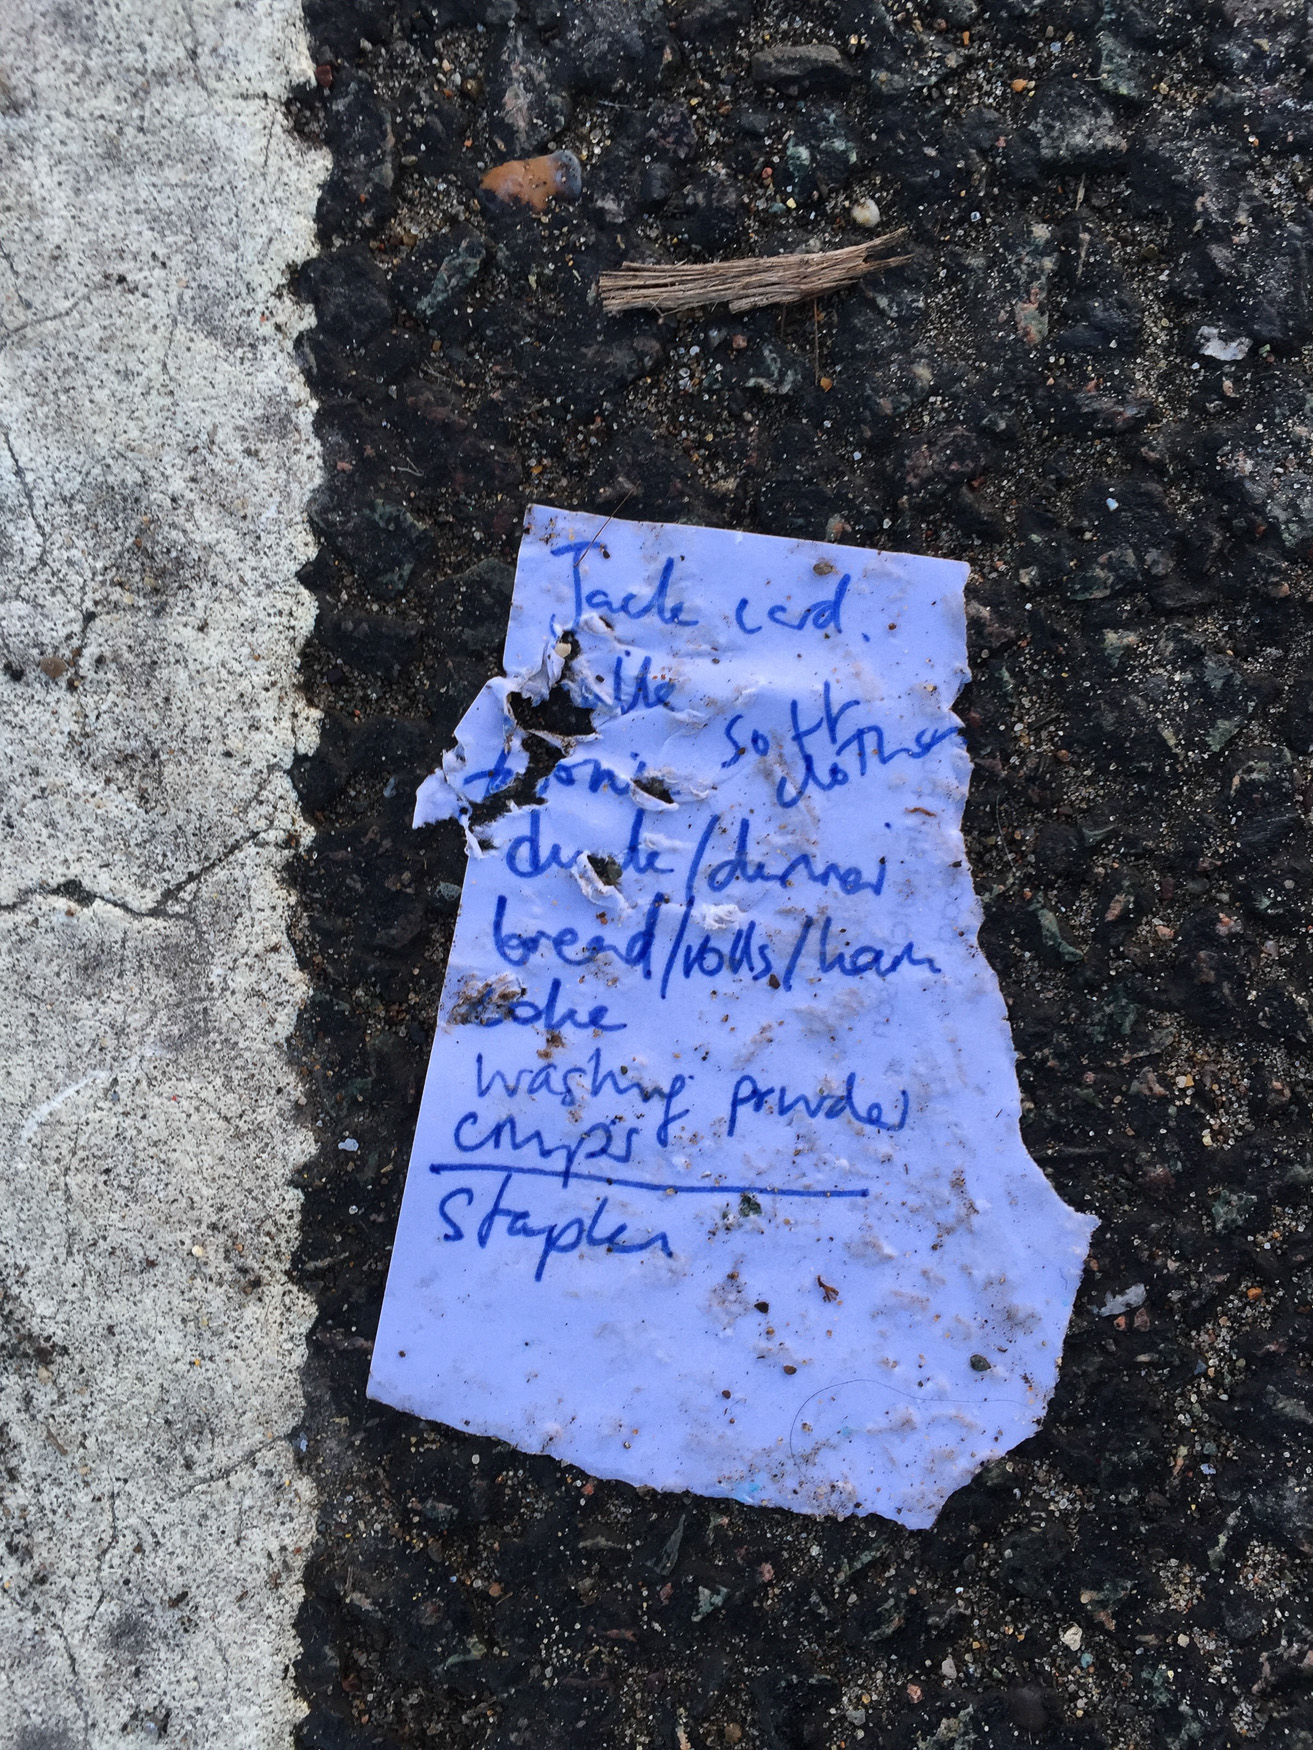 Jack card.
soft
clothes
/dinner
bread/rolls/ham
coke
washing powder
crisps
Staples